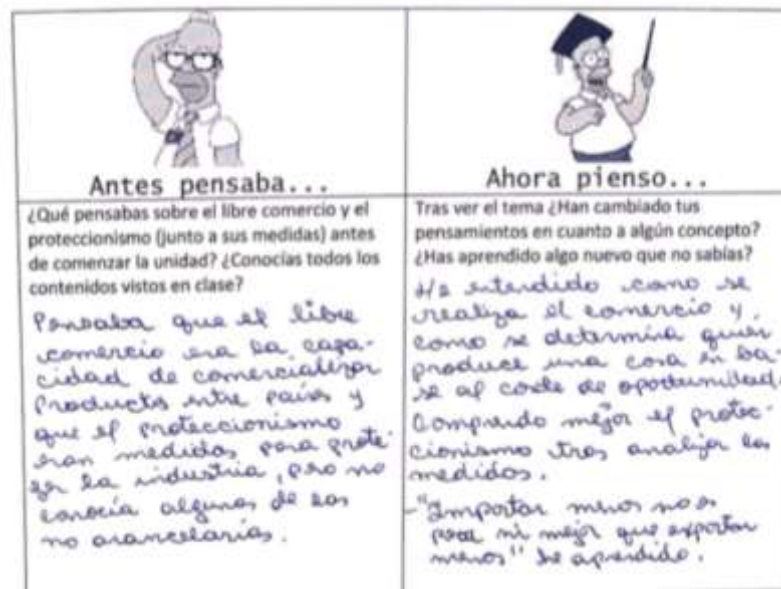 Antes pensaba...
¿Qué pensabas sobre el libre comercio y el
proteccionismo (junto a sus medidas) antes
de comenzar la unidad? ¿Conocías todos los
contenidos vistos en clase?
Pensaba que el libre
comercio era la capa-
cidad de comercializar
productos entre países y
que el proteccionismo
eran medidas para prote-
ger la industria, pero no
conocía algunas de las
no arancelarias.
Ahora pienso...
Tras ver el tema ¿Han cambiado tus
pensamientos en cuanto a algún concepto?
¿Has aprendido algo nuevo que no sabías?
He entendido como se
realiza el comercio y,
como se determina quien
produce una cosa en ba-
se al coste de oportunidad.
Comprendo mejor el protec-
cionismo tras analizar las
medidas.
-"Importar menos no es
peor ni mejor que exportar
menos" he aprendido.